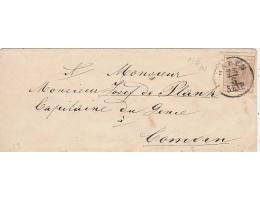 A Monsieur
Monsieur Josef de Plank
Capitaine du Genie
à
Comorn